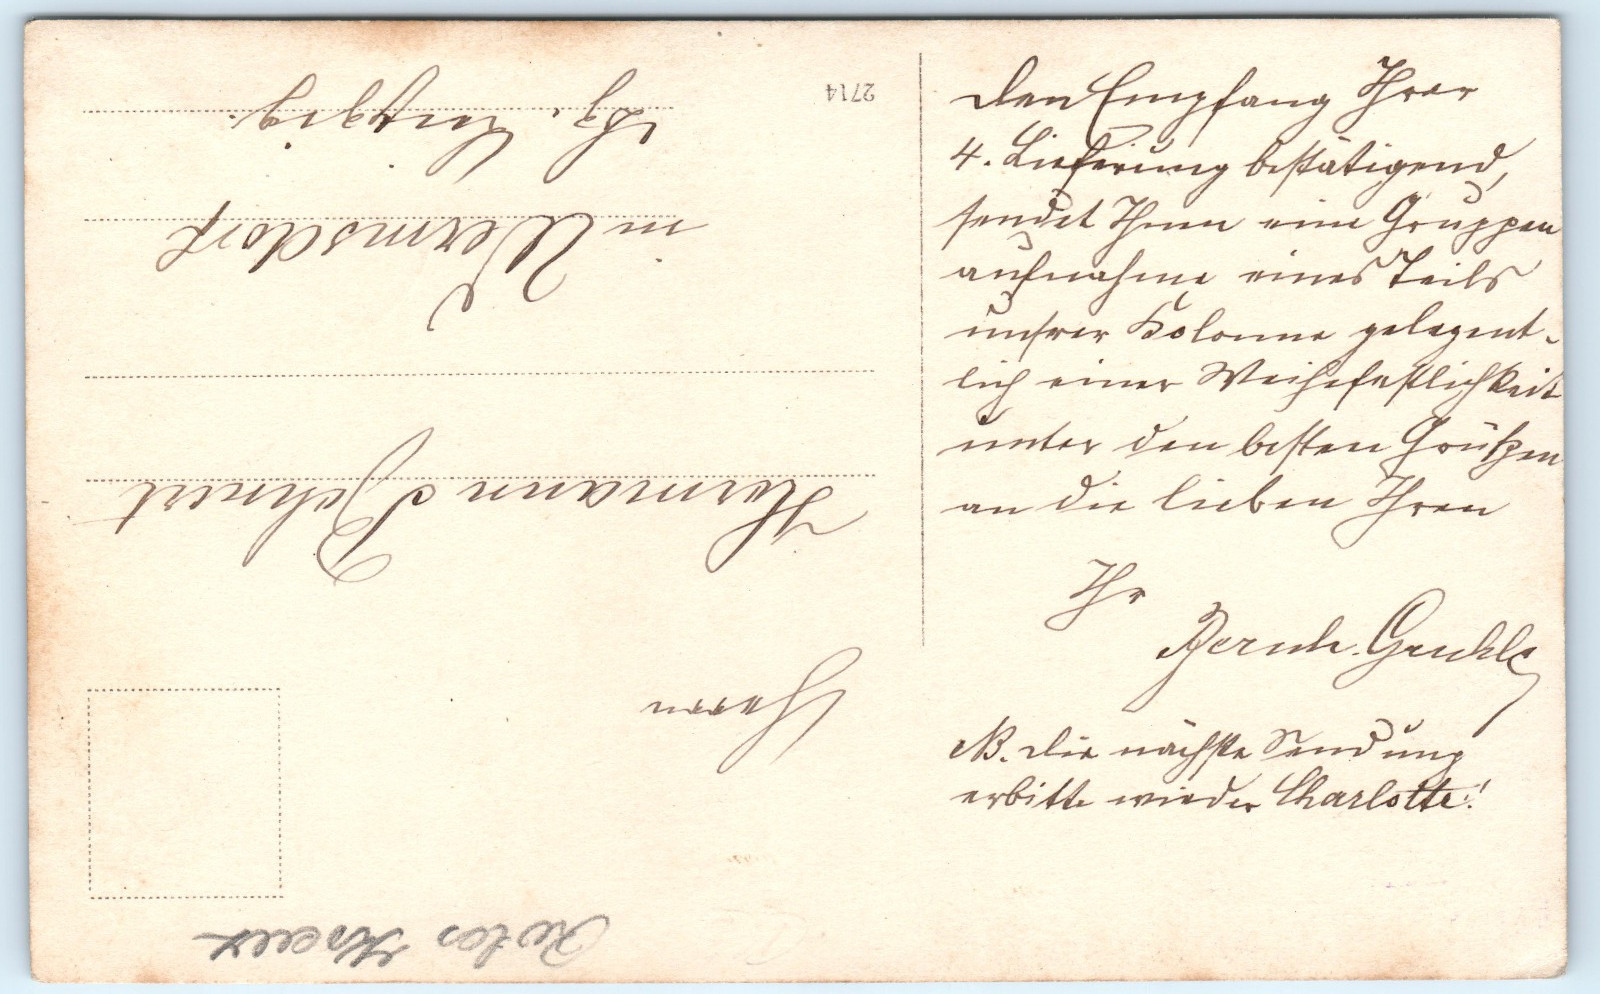 Den Empfang Ihrer
4. Lieferung bestätigend,
sendet Ihnen eine Gruppen
aufnahme eines Teils
unsrer Kolonne gelegent-
lich einer Weihefestlichkeit
unter den besten Grüßen
an die lieben Ihren
Ihr
NB. Die nächste Sendung
erbitte wieder Charlotte!
2714
Herrn
Hermann Dehnert
in Wermsdorf
Bz. Leipzig.
Rotes Kreuz